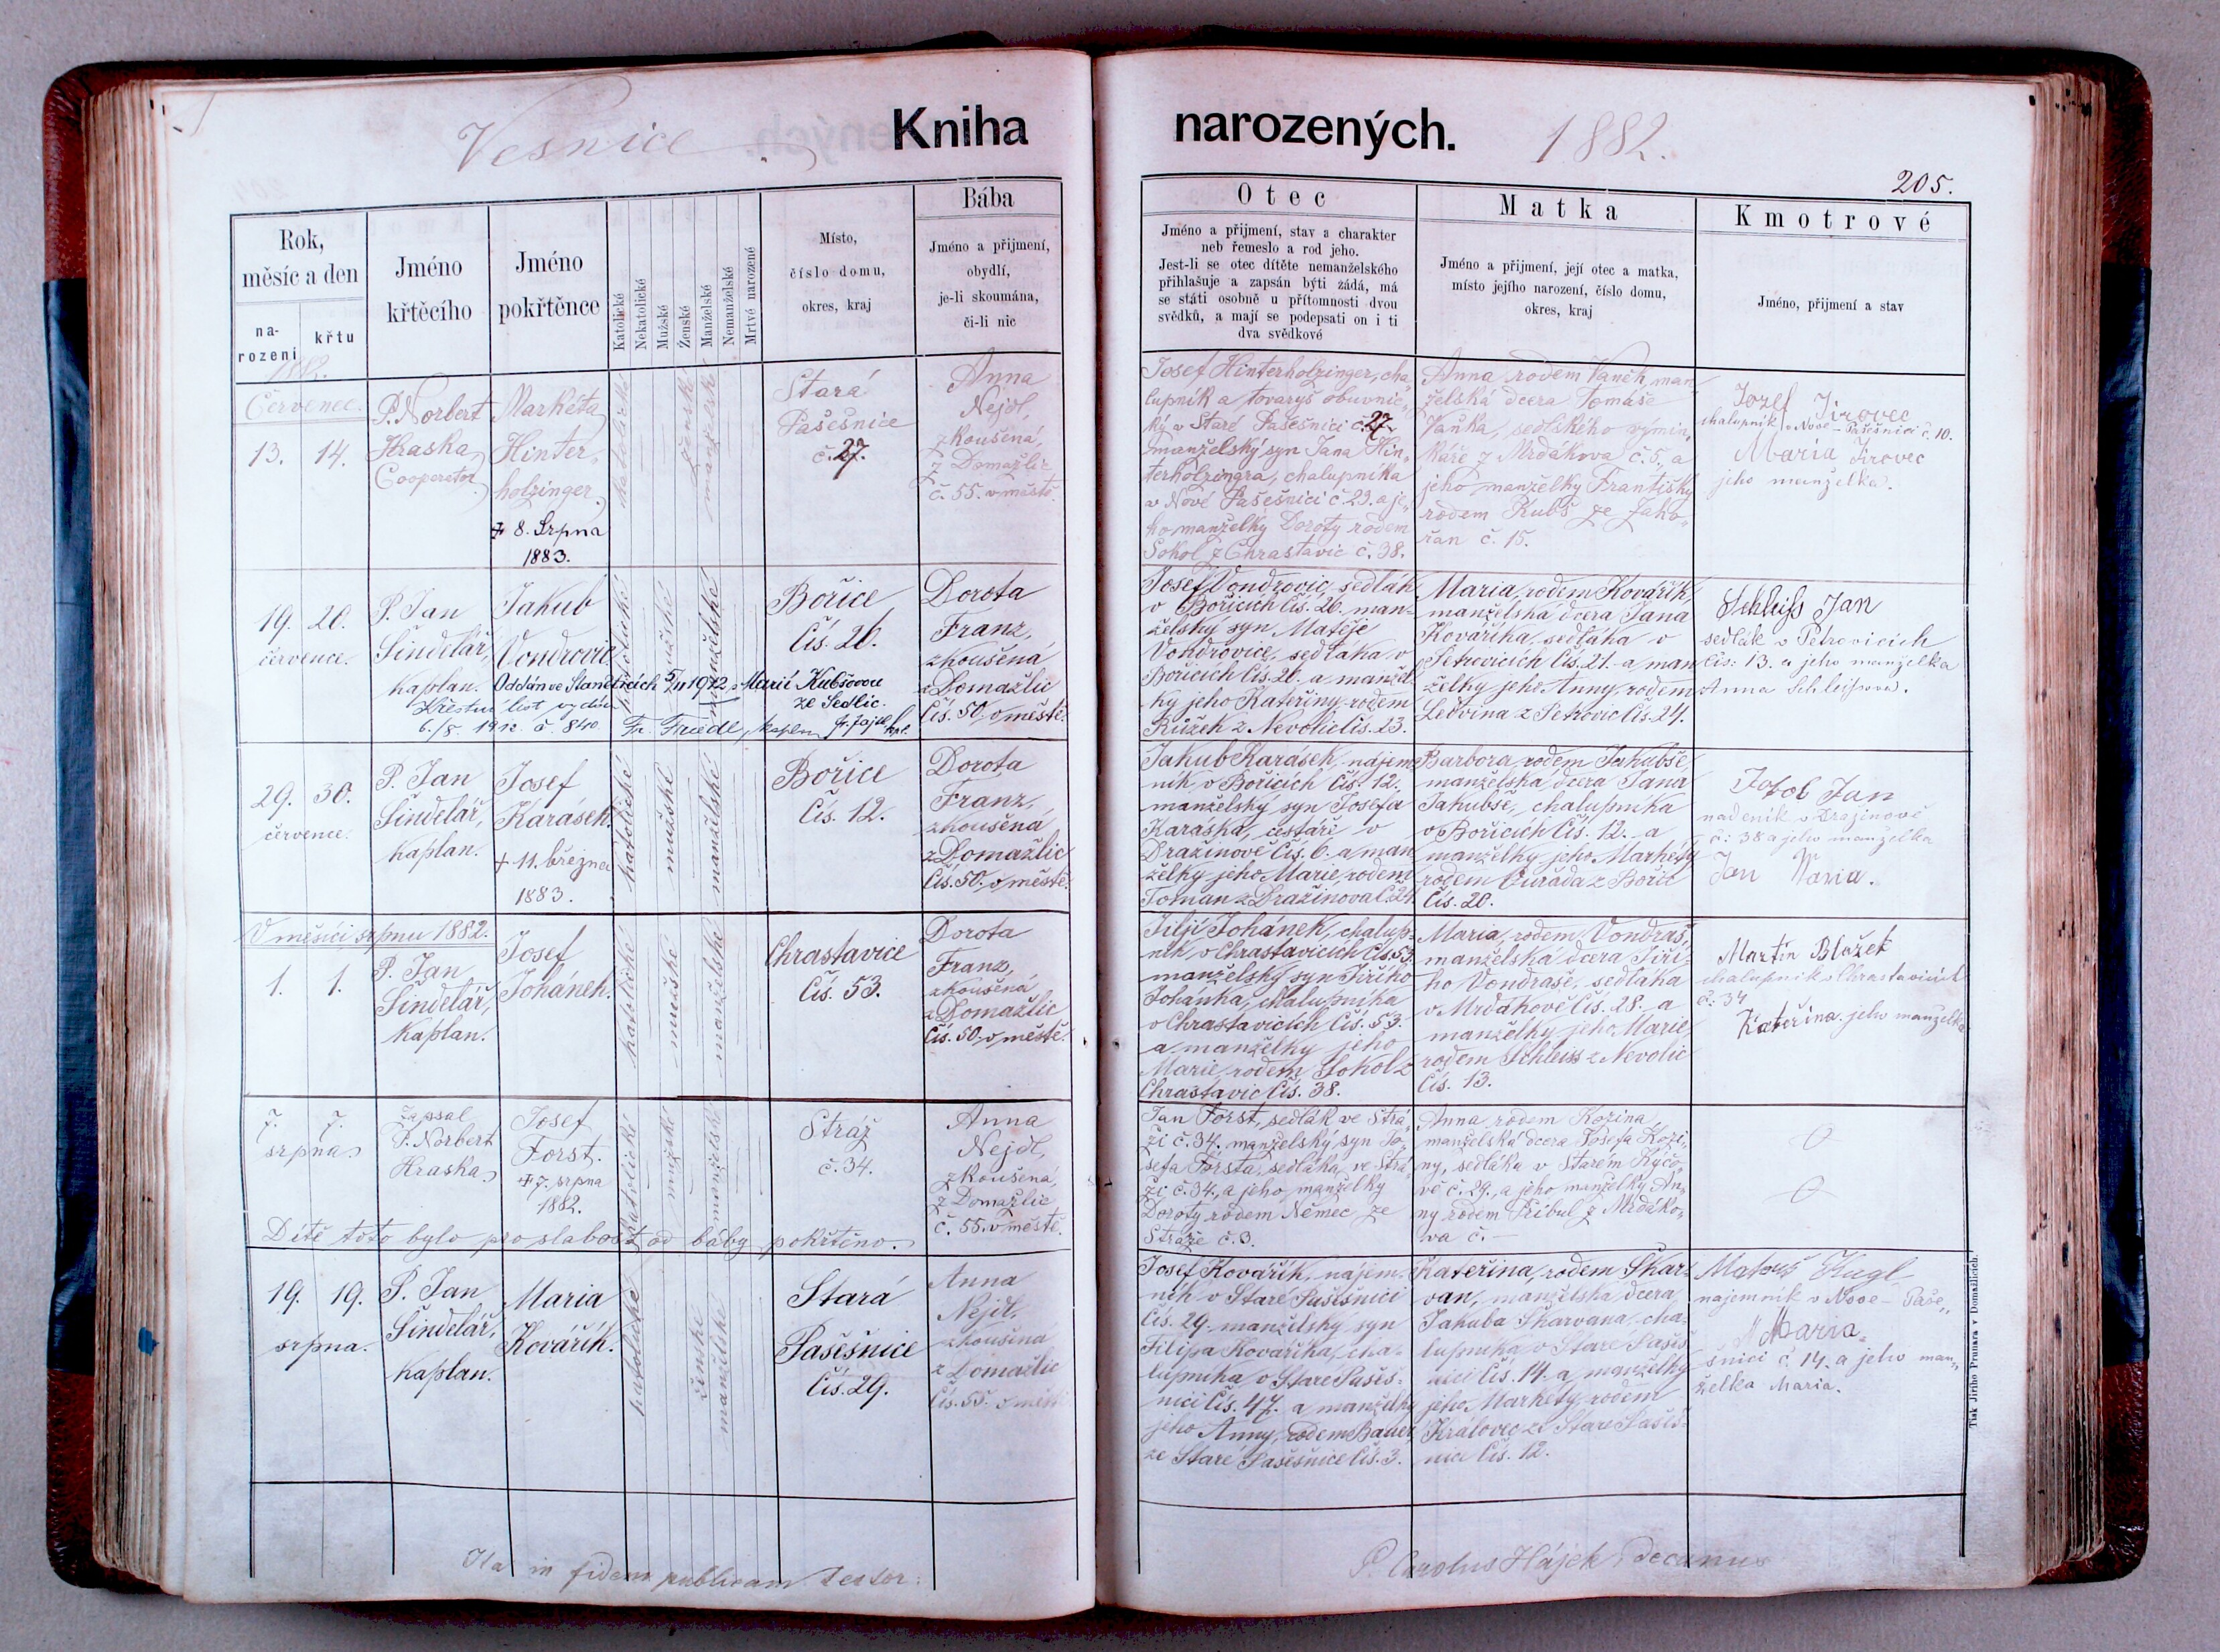 Vesnice.
Kniha narozených.
1882.
205.
Rok,
měsíc a den
na-
rození
křtu
Jméno
křtěcího
Jméno
pokřtěnce
Katolické
Nekatolické
Mužské
Ženské
Manželské
Nemanželské
Mrtvě narozené
Místo,
číslo domu,
okres, kraj
Bába
Jméno a přijmení,
obydlí,
je-li skoumána,
či-li nic
Otec
Jméno a přijmení, stav a charakter
neb řemeslo a rod jeho.
Jest-li se otec dítěte nemanželského
přihlašuje a zapsán býti žádá, má
se státi osobně u přítomnosti dvou
svědků, a mají se podepsati on i ti
dva svědkové
Matka
Jméno a přijmení, její otec a matka,
místo jejího narození, číslo domu,
okres, kraj
Kmotrové
Jméno, přijmení a stav
1882.
Červenec.
13. 14.
P. Norbert
Hraska,
Cooperator
Markéta
Hinter„
holzinger.
† 8. Srpna
1883.
katolické
ženské
manželské
Stará
Pašešnice
č. 27.
Anna
Nejdl,
zkoušená,
z Domažlic
č. 55. v městě.
Josef Hinterholzinger, cha„
lupník a tovaryš obuvnic„
ký v Staré Pašešnici č. 27
manželský syn Jana Hin„
terholzingra, chalupníka
v Nové Pašešnici č. 29. a je„
ho manželky Doroty rodem
Sokol z Chrastavic č. 38.
Anna rodem Vaněk, man„
želská dcera Tomáše
Vaňka, sedlského výmin„
káře z Mrdakova č. 5., a
jeho manželky Františky
rodem Kubš ze Zaho„
řan č. 15.
Jozef Jirovec
chalupník v Nové-Pašešnici č. 10.
Maria Jirovec
jeho manželka.
19. 20.
července.
P. Jan
Šindelář,
kaplan.
Jakub
Vondrovic.
katolické
mužské
manželské
Bořice
Čís. 26.
Dorota
Franz,
zkoušená
z Domažlic
Čís. 50. v městě.
Oddán ve Staněticích 5/11 1912 s Marií Kubšovou
ze Sedlic.
Křestní list vydán
6./8. 1912. č. 840. Fr. Friedl, kaplan
Josef Vondrovic, sedlák
v Bořicích Čís. 26. man-
želský syn Matěje
Vondrovice, sedláka v
Bořicích Čís. 26. a manžel-
ky jeho Kateřiny, rodem
Růžek z Nevolic Čís. 23.
Maria, rodem Kovařík
manželská dcera Jana
Kovaříka, sedláka v
Petrovicích Čís. 21. a man
želky jeho Anny, rodem
Ledvina z Petrovic Čís. 24.
Schleiss Jan
sedlák v Petrovicích
Čís: 13. a jeho manželka
Anna Schleissova.
29. 30.
července.
P. Jan
Šindelář,
kaplan.
Josef
Karásek.
† 11. března
1883.
katolické
mužské
manželské
Bořice
Čís. 12.
Dorota
Franz,
zkoušená
z Domažlic
Čís. 50. v městě.
Jakub Karásek, nájem-
ník v Bořicích Čís. 12.,
manželský syn Josefa
Karáska, cestáře v
Dražinově Čís. 6. a man
želky jeho Marie, rodem
Toman z Dražinova Č. 24.
Barbora, rodem Jakubše
manželská dcera Jana
Jakubše, chalupníka
v Bořicích Čís. 12. a
manželky jeho Markéty
rodem Čuřada z Bořic
Čís. 20.
Jan
nadeník v Dražinově
č: 38 a jeho manželka
Maria.
V měsíci srpnu 1882.
1. 1.
P. Jan
Šindelář,
kaplan.
Josef
Johánek.
katolické
mužské
manželské
Chrastavice
Čís. 53.
Dorota
Franz,
zkoušená
z Domažlic
Čís. 50. v městě.
Jiljí Johánek, chalup-
ník v Chrastavicích Čís. 53.
manželský syn Jiřího
Johánka, chalupníka
v Chrastavicích Čís. 53.
a manželky jeho
Marie, rodem Sokol z
Chrastavic Čís. 38.
Maria, rodem Vondraš,
manželská dcera Jiří-
ho Vondraše, sedláka
v Mrdákově Čís. 28. a
manželky jeho Marie
rodem Schleiss z Nevolic
Čís. 13.
Martin Blažek
chalupník v Chrastavicích
č: 34
Kateřina jeho manželka
7. 7.
srpna.
Zapsal
P. Norbert
Hraska.
Josef
Forst.
† 7. srpna
1882.
katolické
mužské
manželské
Stráž
č. 34.
Anna
Nejdl,
zkoušená,
z Domažlic
č. 55. v městě.
Dítě toto bylo pro slabost od báby pokřtěno.
Jan Forst, sedlák ve Strá„
ži č. 34., manželský syn Jo„
sefa Forsta, sedláka, ve Strá„
ži č. 34., a jeho manželky
Doroty rodem Němec ze
Stráže č. 3.
Anna rodem Kozina
manželská dcera Josefa Kozi„
ny, sedláka v Starém Kyčo„
vě č. 29., a jeho manželky An„
ny rodem Příbul z Mrdáko„
va č. —
19. 19.
srpna.
P. Jan
Šindelář,
kaplan.
Maria
Kovářík.
katolické
ženské
manželské
Stará
Pašešnice
Čís. 29.
Anna
Nejdl,
zkoušená
z Domažlic
Čís. 55. v městě
Josef Kovářík, nájem-
ník v Staré Pašešnici
Čís. 29. manželský syn
Filipa Kovaříka, cha-
lupníka v Staré Pašeš-
nici Čís. 47. a manželky
jeho Anny, rodem Bauer,
ze Staré Pašešnice Čís. 3.
Kateřina, rodem Skar-
van, manželská dcera
Jakuba Skarvana, cha-
lupníka v Staré Pašeš
nici Čís. 14. a manželky
jeho Markéty, rodem
Královec ze Staré Pašeš-
nice Čís. 12.
Matouš Kugl
najemník v Nové-Paše„
Maria
šnici č. 14. a jeho man„
želka Maria.
Ita in fidem publicam testor:
P. Carolus Hájek, Decanus
Tisk Jiřího Prunara v Domažlicích.